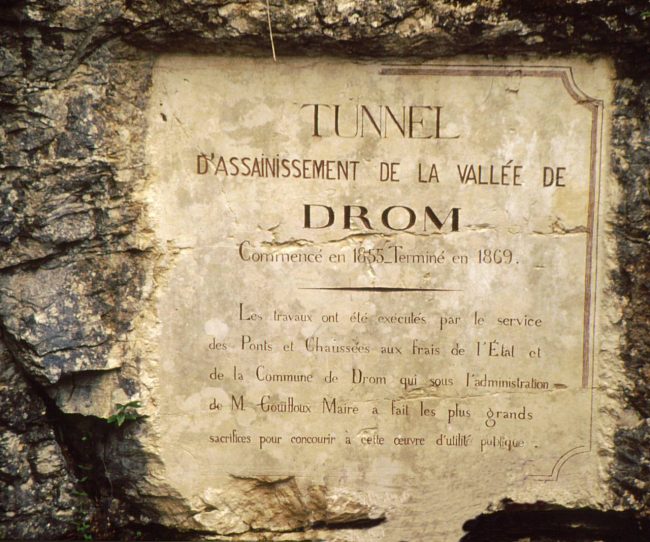 TUNNEL
D'ASSAINISSEMENT DE LA VALLÉE DE
DROM
Commencé en 1855_Terminé en 1869.
Les travaux ont été exécutés par le service
des Ponts et Chaussées aux frais de l'État et
de la Commune de Drom qui sous l'administration
de M. Maire a fait les plus grands
sacrifices pour concourir à cette œuvre d'utilité publique.